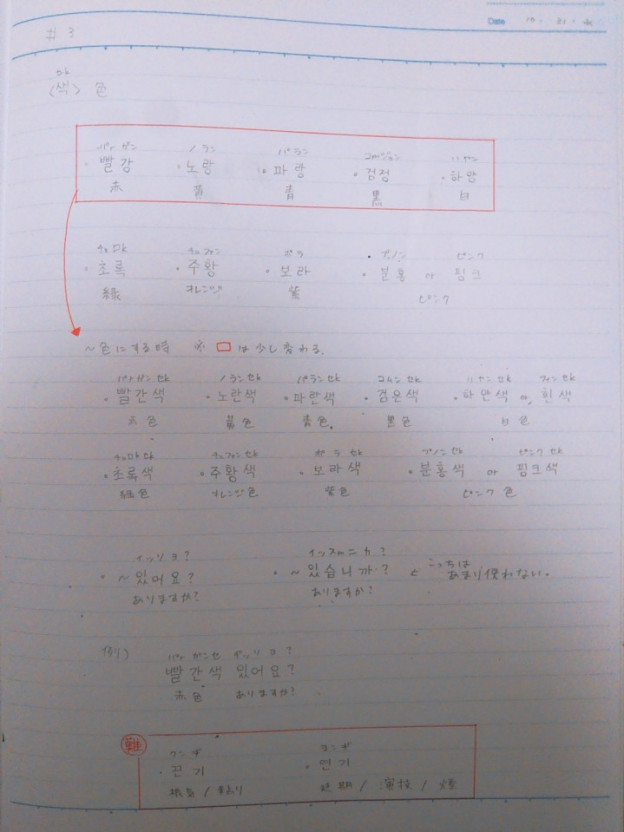 Date 10. 21.
#3
セㇰ
<색> 色
パㇽガン ノラン パラン コㇺジョン ハヤン
・빨강 ・노랑 ・파랑 ・검정 ・하양
赤 黄 青 黒 白
チョロㇰ チュファン ボラ プノン ピンク
・초록 ・주황 ・보라 ・분홍 or 핑크
緑 オレンジ 紫 ピンク
~色にする時 ※ は少し変わる。
パㇽガンセㇰ ノランセㇰ パランセㇰ コムンセㇰ ハヤンセㇰ フィンセㇰ
・빨간색 ・노란색 ・파란색 ・검은색 ・하얀색 or 흰색
赤色 黄色 青色 黒色 白色
チョロㇰセㇰ チュファンセㇰ ボラセㇰ プノンセㇰ ピンクセㇰ
・초록색 ・주황색 ・보라색 ・분홍색 or 핑크색
緑色 オレンジ色 紫色 ピンク色
イッソヨ? イッスㇺニカ?
・~있어요? ・~있습니까? < こっちはあまり使わない。
ありますか? ありますか?
例) パㇽガンセ ギッソヨ?
빨간색 있어요?
赤色 ありますか?
難
クンギ ヨンギ
・끈기 ・연기
根気/粘り 延期/演技/煙